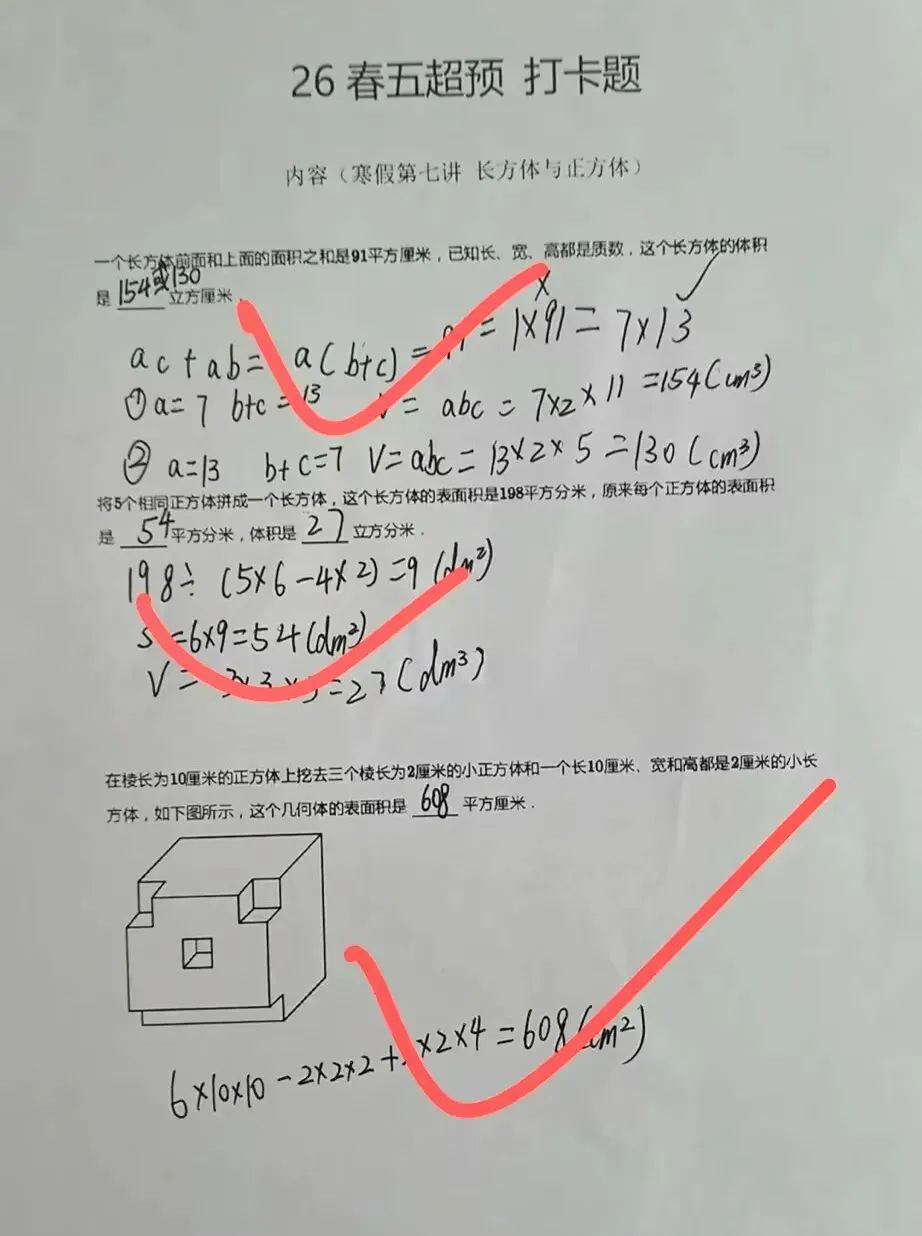 26 春五超预 打卡题
内容（寒假第七讲 长方体与正方体）
一个长方体前面和上面的面积之和是91平方厘米，已知长、宽、高都是质数，这个长方体的体积
是 154或130 立方厘米．
ac + ab = a(b+c) = 91 = 1×91 = 7×13
① a=7 b+c=13 V = abc = 7×2×11 =154(cm³)
② a=13 b+c=7 V=abc=13×2×5 =130(cm³)
将5个相同正方体拼成一个长方体，这个长方体的表面积是198平方分米，原来每个正方体的表面积
是 54 平方分米，体积是 27 立方分米．
198÷(5×6-4×2)=9(dm²)
S =6×9=54(dm²)
V = 3×3×3=27(dm³)
在棱长为10厘米的正方体上挖去三个棱长为2厘米的小正方体和一个长10厘米、宽和高都是2厘米的小长
方体，如下图所示，这个几何体的表面积是 608 平方厘米．
6×10×10-2×2×2+ ×2×4=608(cm²)